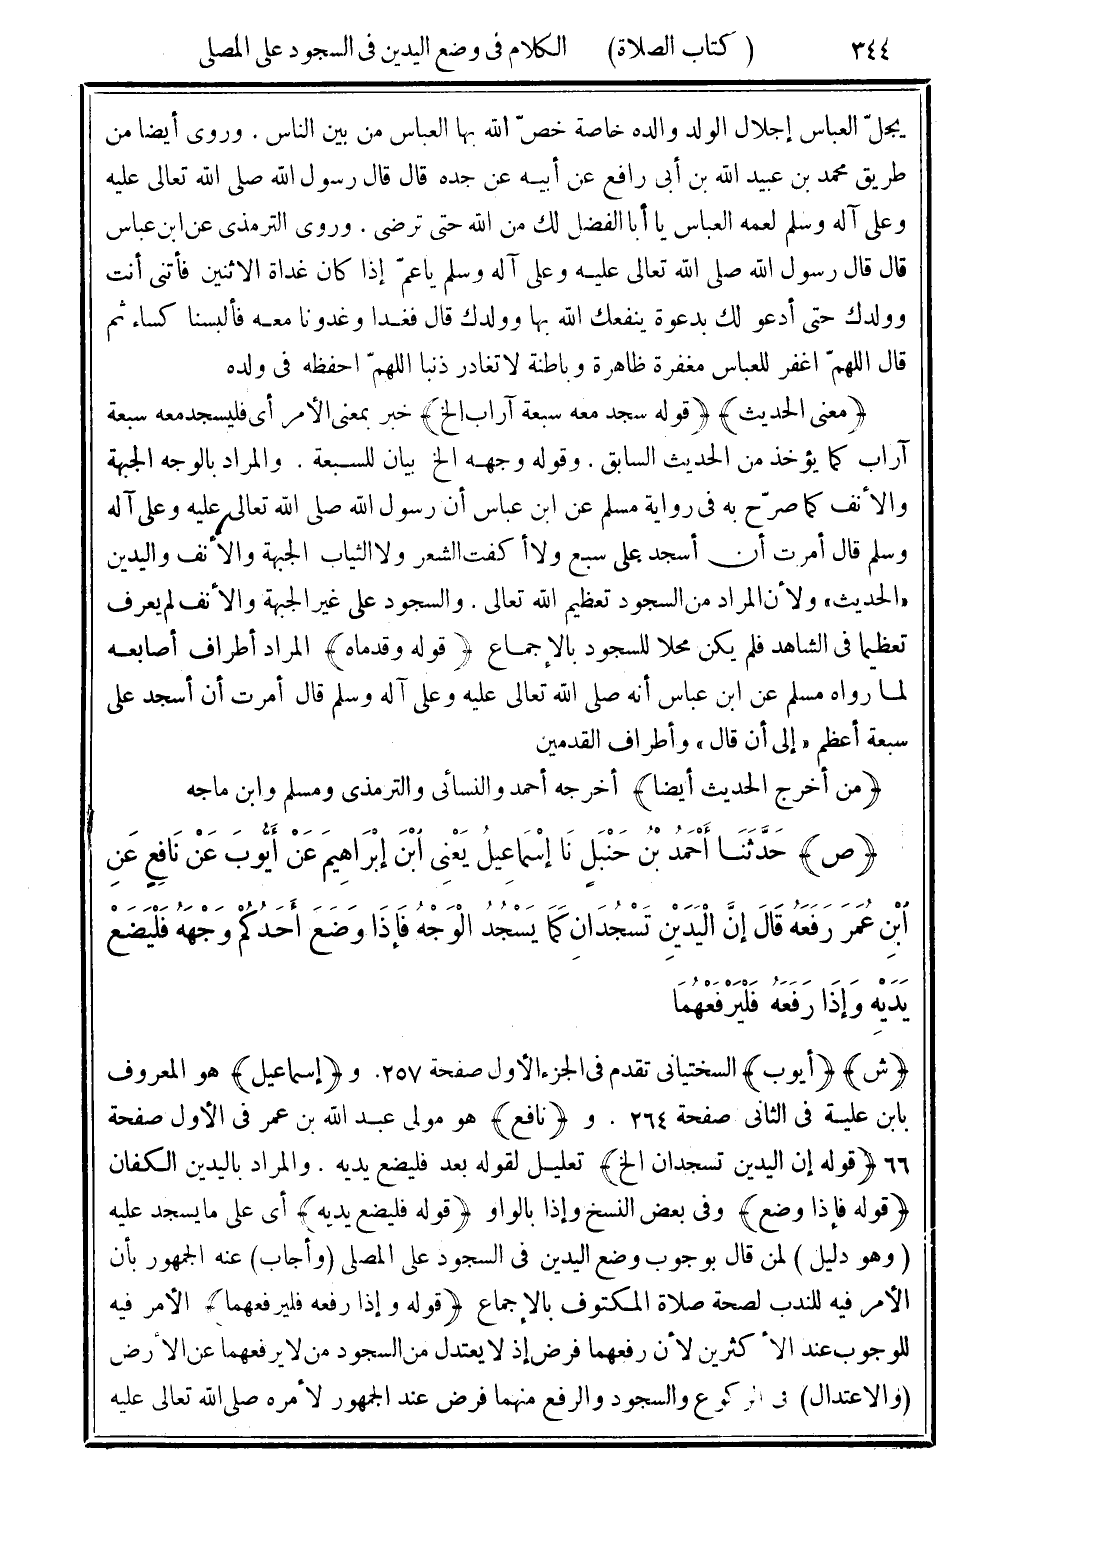 ٣٤٤ ( كتاب الصلاة ) الكلام فى وضع اليدين فى السجود على المصلى
يجلّ العباس إجلال الولد والده خاصة خصّ الله بها العباس من بين الناس . وروى أيضا من
طريق محمد بن عبيد الله بن أبى رافع عن أبيه عن جده قال قال رسول الله صلى الله تعالى عليه
وعلى آله وسلم لعمه العباس يا أبا الفضل لك من الله حتى ترضى . وروى الترمذى عن ابن عباس
قال قال رسول الله صلى الله تعالى عليه وعلى آله وسلم ياعمّ إذا كان غداة الاثنين فأتنى أنت
وولدك حتى أدعو لك بدعوة ينفعك الله بها وولدك قال فغدا وغدونا معه فألبسنا كساء ثم
قال اللهمّ اغفر للعباس مغفرة ظاهرة وباطنة لاتغادر ذنبا اللهمّ احفظه فى ولده
﴿معنى الحديث﴾ ﴿قوله سجد معه سبعة آراب الخ﴾ خبر بمعنى الأمر أى فليسجد معه سبعة
آراب كما يؤخذ من الحديث السابق . وقوله وجهه الخ بيان للسبعة . والمراد بالوجه الجبهة
والأنف كما صرّح به فى رواية مسلم عن ابن عباس أن رسول الله صلى الله تعالى عليه وعلى آله
وسلم قال أمرت أن أسجد على سبع ولا أكفت الشعر ولا الثياب الجبهة والأنف واليدين
«الحديث» ولأن المراد من السجود تعظيم الله تعالى . والسجود على غير الجبهة والأنف لم يعرف
تعظيما فى الشاهد فلم يكن محلا للسجود بالإجماع ﴿ قوله وقدماه﴾ المراد أطراف أصابعه
لما رواه مسلم عن ابن عباس أنه صلى الله تعالى عليه وعلى آله وسلم قال أمرت أن أسجد على
سبعة أعظم « إلى أن قال » وأطراف القدمين
﴿من أخرج الحديث أيضا﴾ أخرجه أحمد والنسائى والترمذى ومسلم وابن ماجه
﴿ص﴾ حَدَّثَنَا أَحْمَدُ بْنُ حَنْبَلٍ نَا إِسْمَاعِيلُ يَعْنِى ابْنَ إِبْرَاهِيمَ عَنْ أَيُّوبَ عَنْ نَافِعٍ عَنِ
ابْنِ عُمَرَ رَفَعَهُ قَالَ إِنَّ الْيَدَيْنِ تَسْجُدَانِ كَمَا يَسْجُدُ الْوَجْهُ فَإِذَا وَضَعَ أَحَدُكُمْ وَجْهَهُ فَلْيَضَعْ
يَدَيْهِ وَإِذَا رَفَعَهُ فَلْيَرْفَعْهُمَا
﴿ش﴾ ﴿أيوب﴾ السختيانى تقدم فى الجزء الأول صفحة ٢٥٧. و ﴿إسماعيل﴾ هو المعروف
بابن علية فى الثانى صفحة ٢٦٤ . و ﴿نافع﴾ هو مولى عبد الله بن عمر فى الأول صفحة
٦٦ ﴿قوله إن اليدين تسجدان الخ﴾ تعليل لقوله بعد فليضع يديه . والمراد باليدين الكفان
﴿قوله فإذا وضع﴾ وفى بعض النسخ وإذا بالواو ﴿قوله فليضع يديه﴾ أى على مايسجد عليه
( وهو دليل ) لمن قال بوجوب وضع اليدين فى السجود على المصلى (وأجاب) عنه الجمهور بأن
الأمر فيه للندب لصحة صلاة المكتوف بالإجماع ﴿قوله وإذا رفعه فليرفعهما﴾ الأمر فيه
للوجوب عند الأكثرين لأن رفعهما فرض إذ لايعتدل من السجود من لايرفعهما عن الأرض
(والاعتدال) فى الركوع والسجود والرفع منهما فرض عند الجمهور لأمره صلى الله تعالى عليه